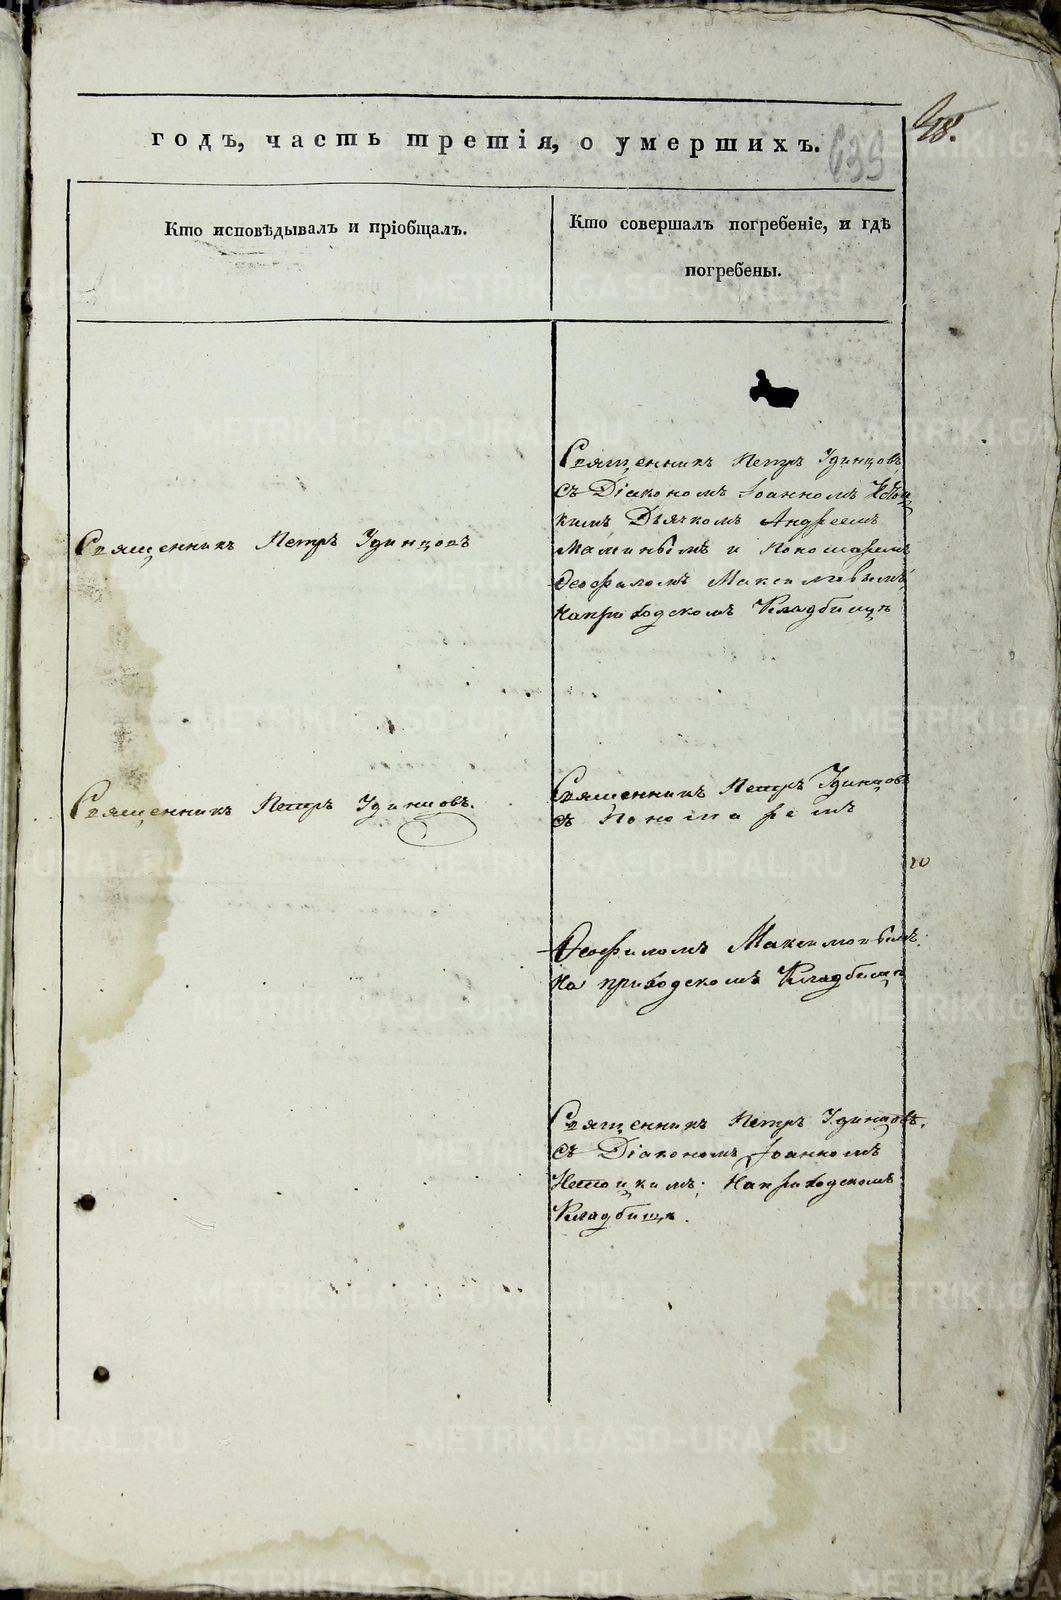 годъ, часть третія, о умершихъ.
48.
639
Кто исповѣдывалъ и пріобщалъ.
Кто совершалъ погребеніе, и гдѣ
погребены.
Священникъ Петръ Удинцовъ
Священникъ Петръ Удинцовъ
съ Діакономъ Іоанномъ
кимъ Дьячкомъ Андреемъ
Маминымъ и Пономаремъ
Ѳеофиломъ Максимовымъ,
на приходскомъ Кладбищѣ
Священникъ Петръ Удинцовъ.
Священникъ Петръ Удинцовъ
съ Пономаремъ
Ѳеофиломъ Максимовымъ.
на приходскомъ Кладбищѣ
Священникъ Петръ Удинцовъ.
съ Діакономъ Іоанномъ
на приходскомъ
Кладбищѣ.
METRIKI.GASO-URAL.RU